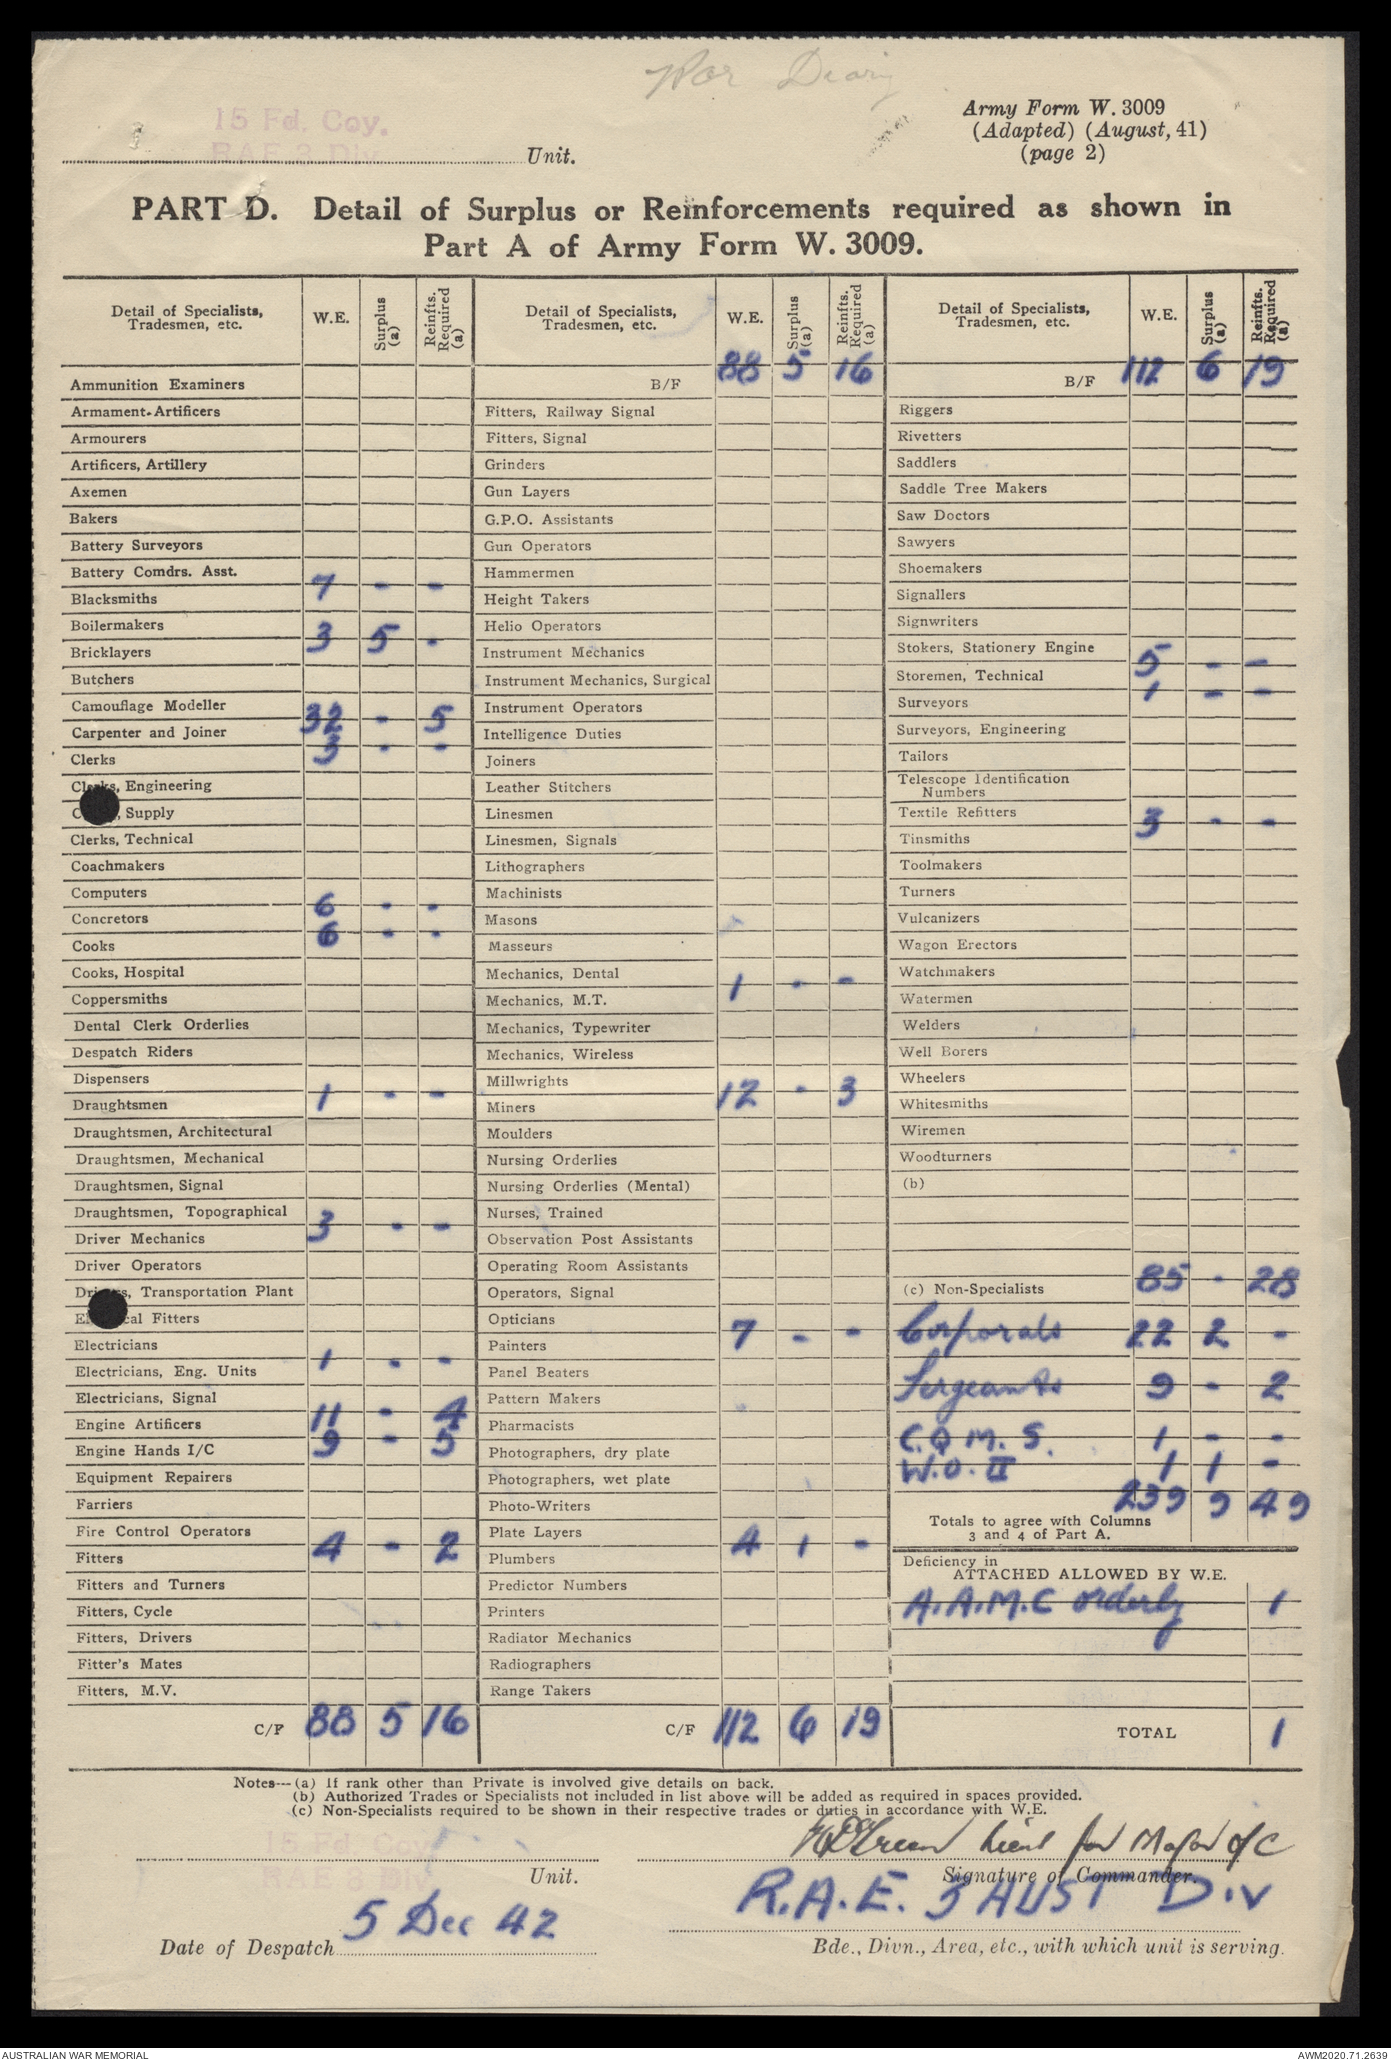 War Diary
15 Fd. Coy.
RAE 3 Div.
Unit.
Army Form W. 3009
(Adapted) (August, 41)
(page 2)
PART D. Detail of Surplus or Reinforcements required as shown in
Part A of Army Form W. 3009.
Detail of Specialists, Tradesmen, etc. W.E. Surplus (a) Reinfts. Required (a)
Ammunition Examiners
Armament Artificers
Armourers
Artificers, Artillery
Axemen
Bakers
Battery Surveyors
Battery Comdrs. Asst.
Blacksmiths 7 - -
Boilermakers
Bricklayers 3 5 -
Butchers
Camouflage Modeller
Carpenter and Joiner 32 - 5
Clerks 3 - -
Clerks, Engineering
, Supply
Clerks, Technical
Coachmakers
Computers
Concretors 6 - -
Cooks 6 - -
Cooks, Hospital
Coppersmiths
Dental Clerk Orderlies
Despatch Riders
Dispensers
Draughtsmen 1 - -
Draughtsmen, Architectural
Draughtsmen, Mechanical
Draughtsmen, Signal
Draughtsmen, Topographical
Driver Mechanics 3 - -
Driver Operators
Drivers, Transportation Plant
Electrical Fitters
Electricians
Electricians, Eng. Units 1 - -
Electricians, Signal
Engine Artificers 11 - 4
Engine Hands I/C 9 - 5
Equipment Repairers
Farriers
Fire Control Operators
Fitters 4 - 2
Fitters and Turners
Fitters, Cycle
Fitters, Drivers
Fitter's Mates
Fitters, M.V.
C/F 88 5 16
Detail of Specialists, Tradesmen, etc. W.E. Surplus (a) Reinfts. Required (a)
B/F 88 5 16
Fitters, Railway Signal
Fitters, Signal
Grinders
Gun Layers
G.P.O. Assistants
Gun Operators
Hammermen
Height Takers
Helio Operators
Instrument Mechanics
Instrument Mechanics, Surgical
Instrument Operators
Intelligence Duties
Joiners
Leather Stitchers
Linesmen
Linesmen, Signals
Lithographers
Machinists
Masons
Masseurs
Mechanics, Dental
Mechanics, M.T. 1 - -
Mechanics, Typewriter
Mechanics, Wireless
Millwrights
Miners 12 - 3
Moulders
Nursing Orderlies
Nursing Orderlies (Mental)
Nurses, Trained
Observation Post Assistants
Operating Room Assistants
Operators, Signal
Opticians
Painters 7 - -
Panel Beaters
Pattern Makers
Pharmacists
Photographers, dry plate
Photographers, wet plate
Photo-Writers
Plate Layers
Plumbers 4 1 -
Predictor Numbers
Printers
Radiator Mechanics
Radiographers
Range Takers
C/F 112 6 19
Detail of Specialists, Tradesmen, etc. W.E. Surplus (a) Reinfts. Required (a)
B/F 112 6 19
Riggers
Rivetters
Saddlers
Saddle Tree Makers
Saw Doctors
Sawyers
Shoemakers
Signallers
Signwriters
Stokers, Stationery Engine
Storemen, Technical 5 - -
Surveyors 1 - -
Surveyors, Engineering
Tailors
Telescope Identification
Numbers
Textile Refitters
Tinsmiths 3 - -
Toolmakers
Turners
Vulcanizers
Wagon Erectors
Watchmakers
Watermen
Welders
Well Borers
Wheelers
Whitesmiths
Wiremen
Woodturners
(b)
(c) Non-Specialists 85 - 28
Corporals 22 2 -
Sergeants 9 - 2
C.Q.M.S. 1 - -
W.O. II 1 1 -
239 9 49
Totals to agree with Columns
3 and 4 of Part A.
Deficiency in
ATTACHED ALLOWED BY W.E.
A.A.M.C orderly 1
TOTAL 1
Notes---(a) If rank other than Private is involved give details on back.
(b) Authorized Trades or Specialists not included in list above will be added as required in spaces provided.
(c) Non-Specialists required to be shown in their respective trades or duties in accordance with W.E.
15 Fd. Coy.
RAE 3 Div.
Unit.
Green Lieut for Major o/c
Signature of Commander.
R.A.E. 3 AUST Div
5 Dec 42
Date of Despatch
Bde., Divn., Area, etc., with which unit is serving.
AUSTRALIAN WAR MEMORIAL
AWM2020.71.2639